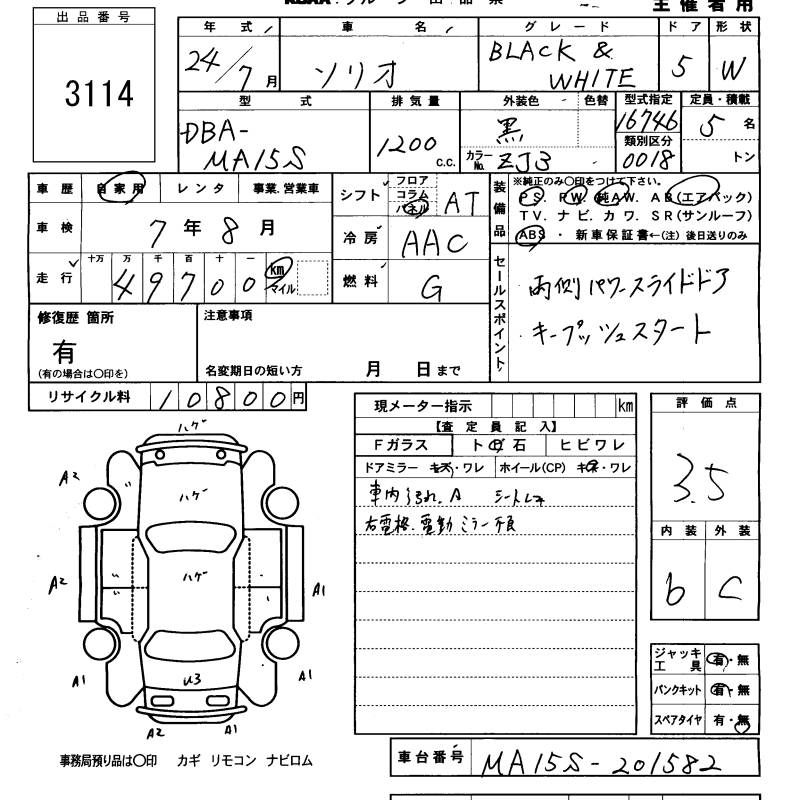 主催者用
出品番号
3114
年式 車名 グレード ドア 形状
24/7月 ソリオ BLACK & WHITE 5 W
型式 排気量 外装色 色替 型式指定 定員・積載
DBA-MA15S 1200 c.c. 黒 16746 5名
カラーNo. ZJ3 類別区分 0018 トン
車歴 自家用 レンタ 事業.営業車
車検 7年8月
走行 十万 万 千 百 十 一
49700 km マイル
シフト フロア コラム パネル AT
冷房 AAC
燃料 G
装備品
※純正のみ〇印をつけて下さい。
PS. PW. 純AW. AB(エアバック)
TV. ナビ. カワ. SR(サンルーフ)
ABS ・ 新車保証書←(注) 後日送りのみ
セールスポイント
両側パワースライドドア
キープッシュスタート
修復歴 箇所
有
(有の場合は〇印を)
注意事項
名変期日の短い方 月 日まで
リサイクル料 10800円
現メーター指示 km
【査定員記入】
Fガラス ト石 ヒビワレ
ドアミラー キズ・ワレ ホイール(CP) キズ・ワレ
車内 A シート
右電格.電動ミラー不良
評価点
3.5
内装 外装
b C
ジャッキ工具 有・無
パンクキット 有・無
スペアタイヤ 有・無
ハゲ
A2
ハゲ
A2
ハゲ
A1
A1
U3
A1
A2
A1
事務局預り品は〇印 カギ リモコン ナビロム
車台番号 MA15S-201582